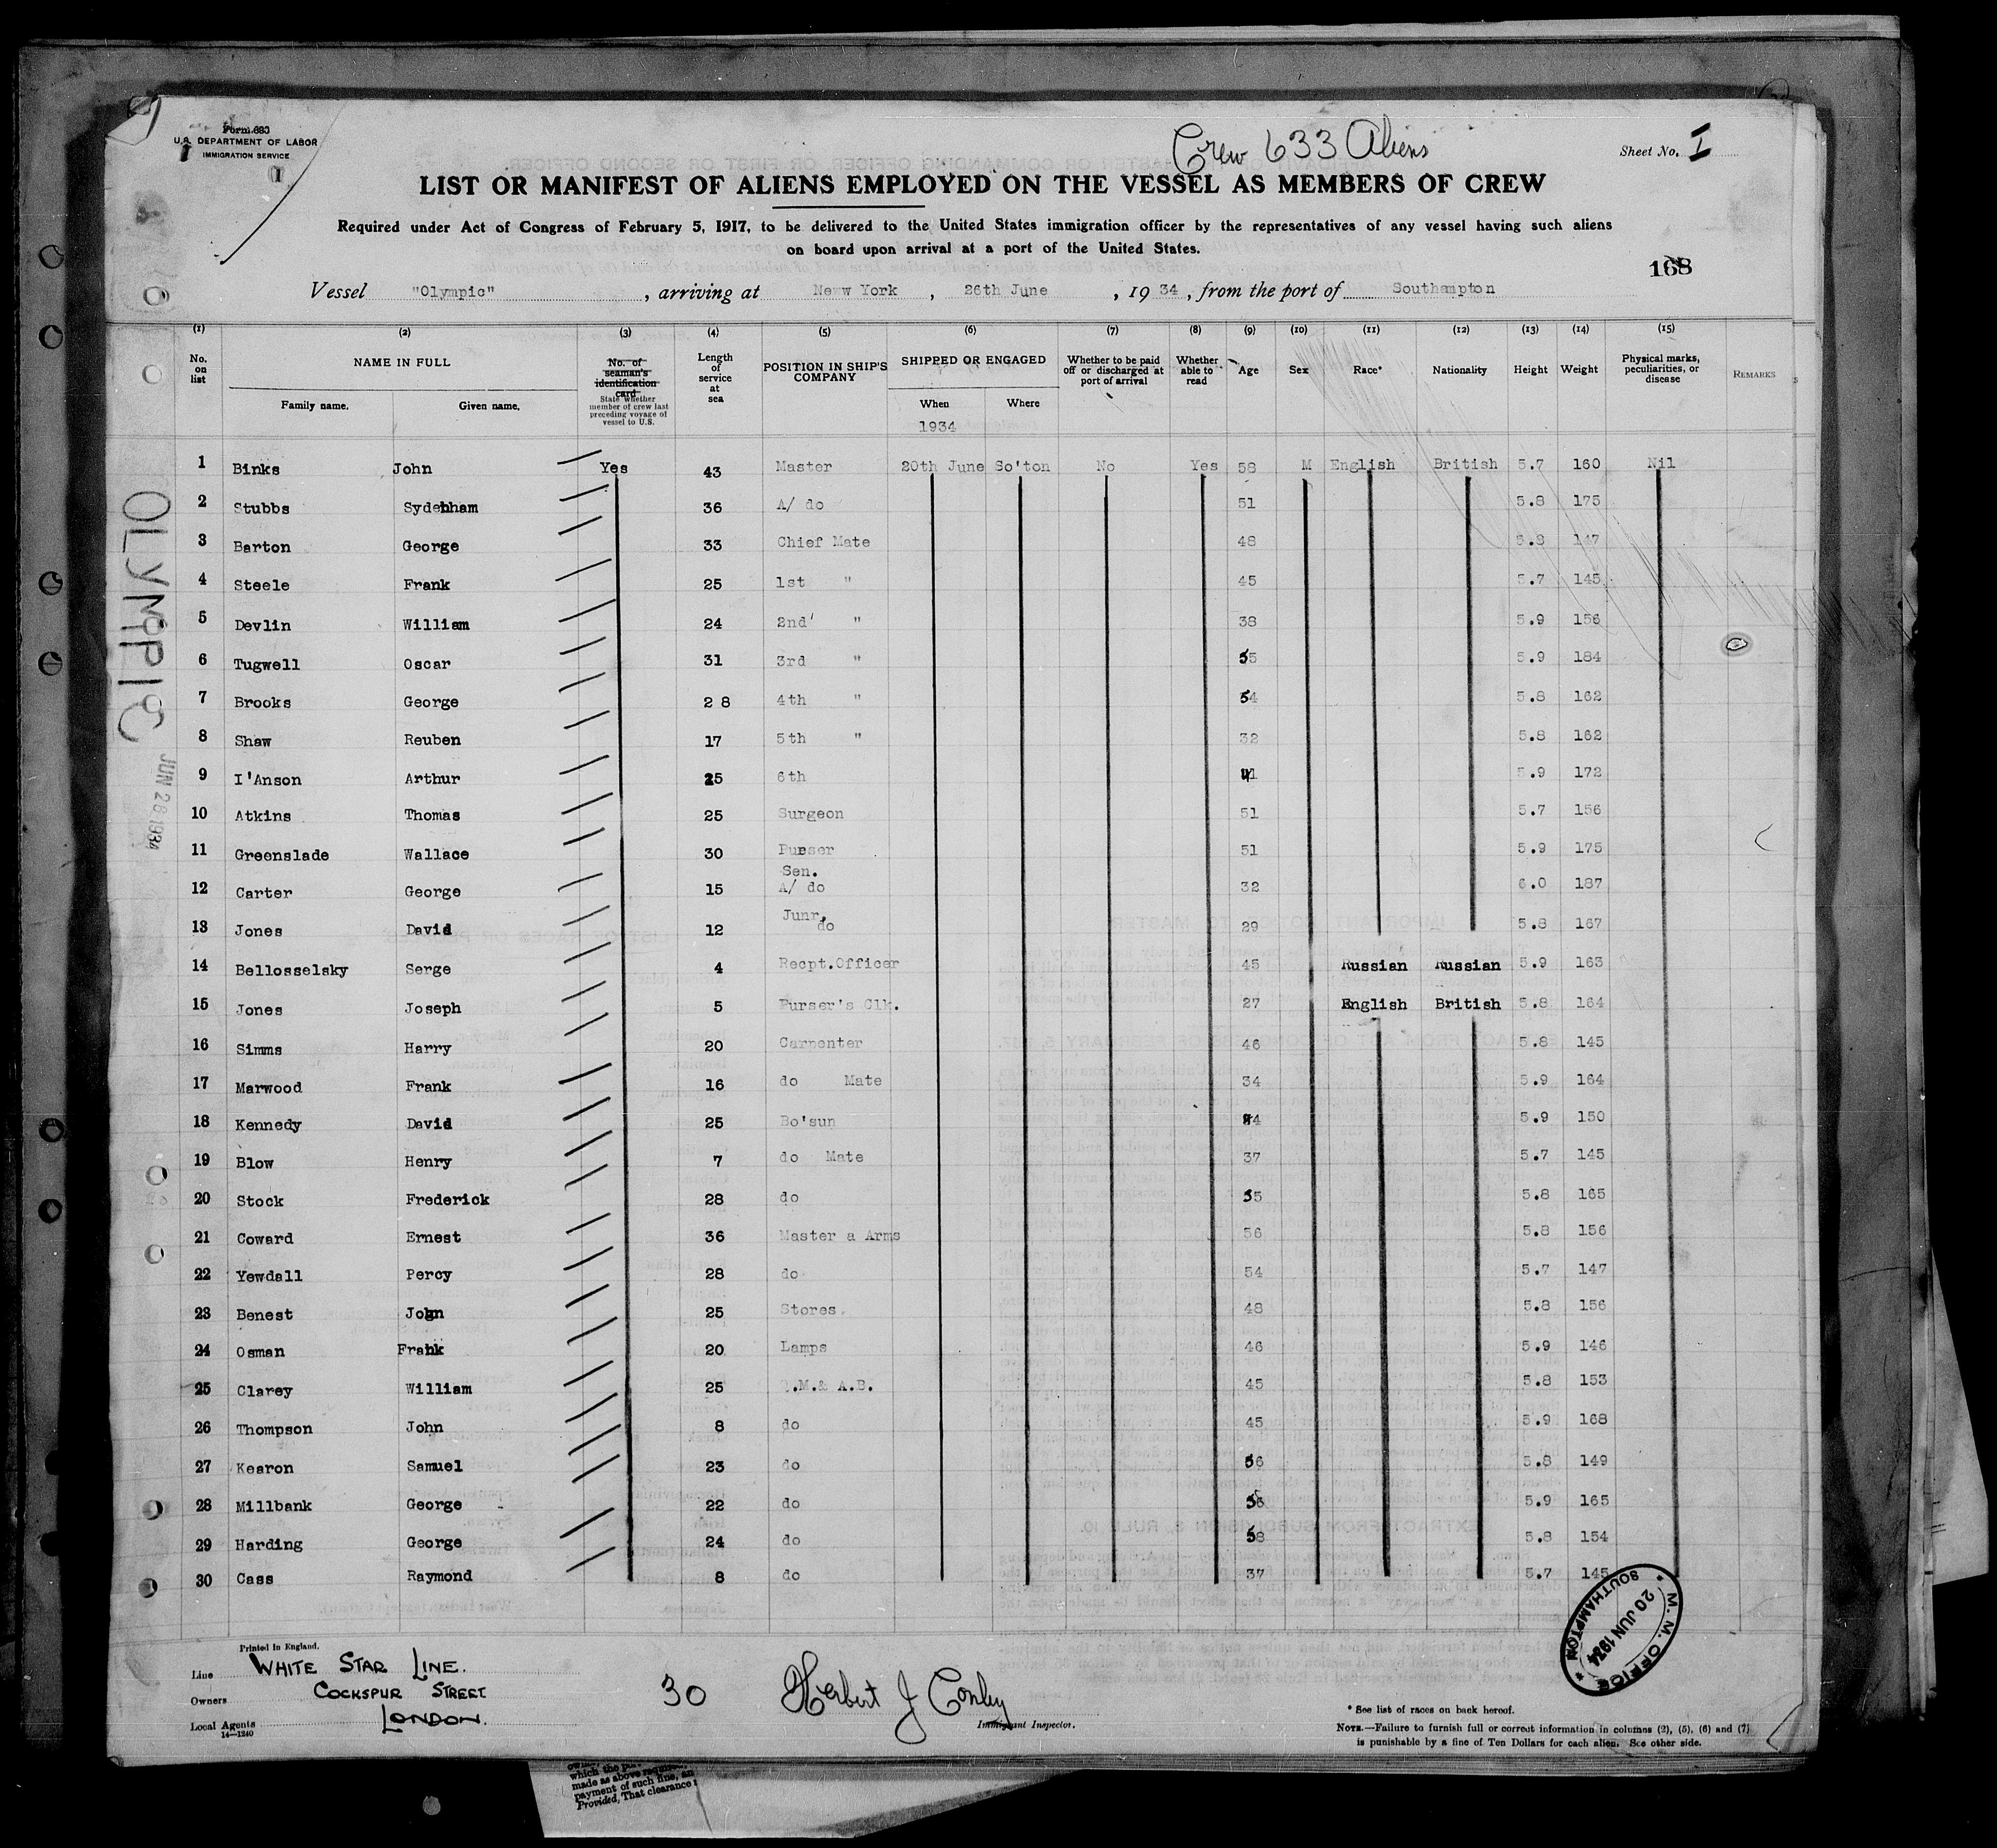 Form 680
U.S. DEPARTMENT OF LABOR
IMMIGRATION SERVICE
Crew 633 Aliens
Sheet No. I
LIST OR MANIFEST OF ALIENS EMPLOYED ON THE VESSEL AS MEMBERS OF CREW
Required under Act of Congress of February 5, 1917, to be delivered to the United States immigration officer by the representatives of any vessel having such aliens
on board upon arrival at a port of the United States.
168
Vessel "Olympic", arriving at New York, 26th June, 1934, from the port of Southampton
(1) (2) (3) (4) (5) (6) (7) (8) (9) (10) (11) (12) (13) (14) (15)
No. on list NAME IN FULL Family name. Given name. No. of seaman's identification card State whether member of crew last preceding voyage of vessel to U.S. Length of service at sea POSITION IN SHIP'S COMPANY SHIPPED OR ENGAGED When Where Whether to be paid off or discharged at port of arrival Whether able to read Age Sex Race* Nationality Height Weight Physical marks, peculiarities, or disease REMARKS
1934
1 Binks John Yes 43 Master 20th June So'ton No Yes 58 M English British 5.7 160 Nil
2 Stubbs Sydenham 36 A/ do 51 5.8 175
3 Barton George 33 Chief Mate 48 5.8 147
4 Steele Frank 25 1st " 45 5.7 145
5 Devlin William 24 2nd " 38 5.9 156
6 Tugwell Oscar 31 3rd " 55 5.9 184
7 Brooks George 2 8 4th " 54 5.8 162
8 Shaw Reuben 17 5th " 32 5.8 162
9 I'Anson Arthur 25 6th 41 5.9 172
10 Atkins Thomas 25 Surgeon 51 5.7 156
11 Greenslade Wallace 30 Purser 51 5.9 175
12 Carter George 15 Sen. A/ do 32 6.0 187
13 Jones David 12 Junr. do 29 5.8 167
14 Bellosselsky Serge 4 Recpt.Officer 45 Russian Russian 5.9 163
15 Jones Joseph 5 Purser's Clk. 27 English British 5.8 164
16 Simms Harry 20 Carpenter 46 5.8 145
17 Marwood Frank 16 do Mate 34 5.9 164
18 Kennedy David 25 Bo'sun 44 5.9 150
19 Blow Henry 7 do Mate 37 5.7 145
20 Stock Frederick 28 do 55 5.8 165
21 Coward Ernest 36 Master a Arms 56 5.8 156
22 Yewdall Percy 28 do 54 5.7 147
23 Benest John 25 Stores. 48 5.8 156
24 Osman Frank 20 Lamps 46 5.9 146
25 Clarey William 25 Q.M.& A.B. 45 5.8 153
26 Thompson John 8 do 45 5.9 168
27 Kearon Samuel 23 do 56 5.8 149
28 Millbank George 22 do 5.9 165
29 Harding George 24 do 58 5.8 154
30 Cass Raymond 8 do 37 5.7 145
OLYMPIC
JUN 26 1934
M. M. OFFICE
20 JUN 1934
SOUTHAMPTON
Printed in England.
Line WHITE STAR LINE.
Owners COCKSPUR STREET
Local Agents LONDON.
14—1240
30
Herbert J Conley
Immigrant Inspector.
* See list of races on back hereof.
NOTE.—Failure to furnish full or correct information in columns (2), (5), (6) and (7)
is punishable by a fine of Ten Dollars for each alien. See other side.
which the
made as above required
payment of such fine, an
Provided, That clearance